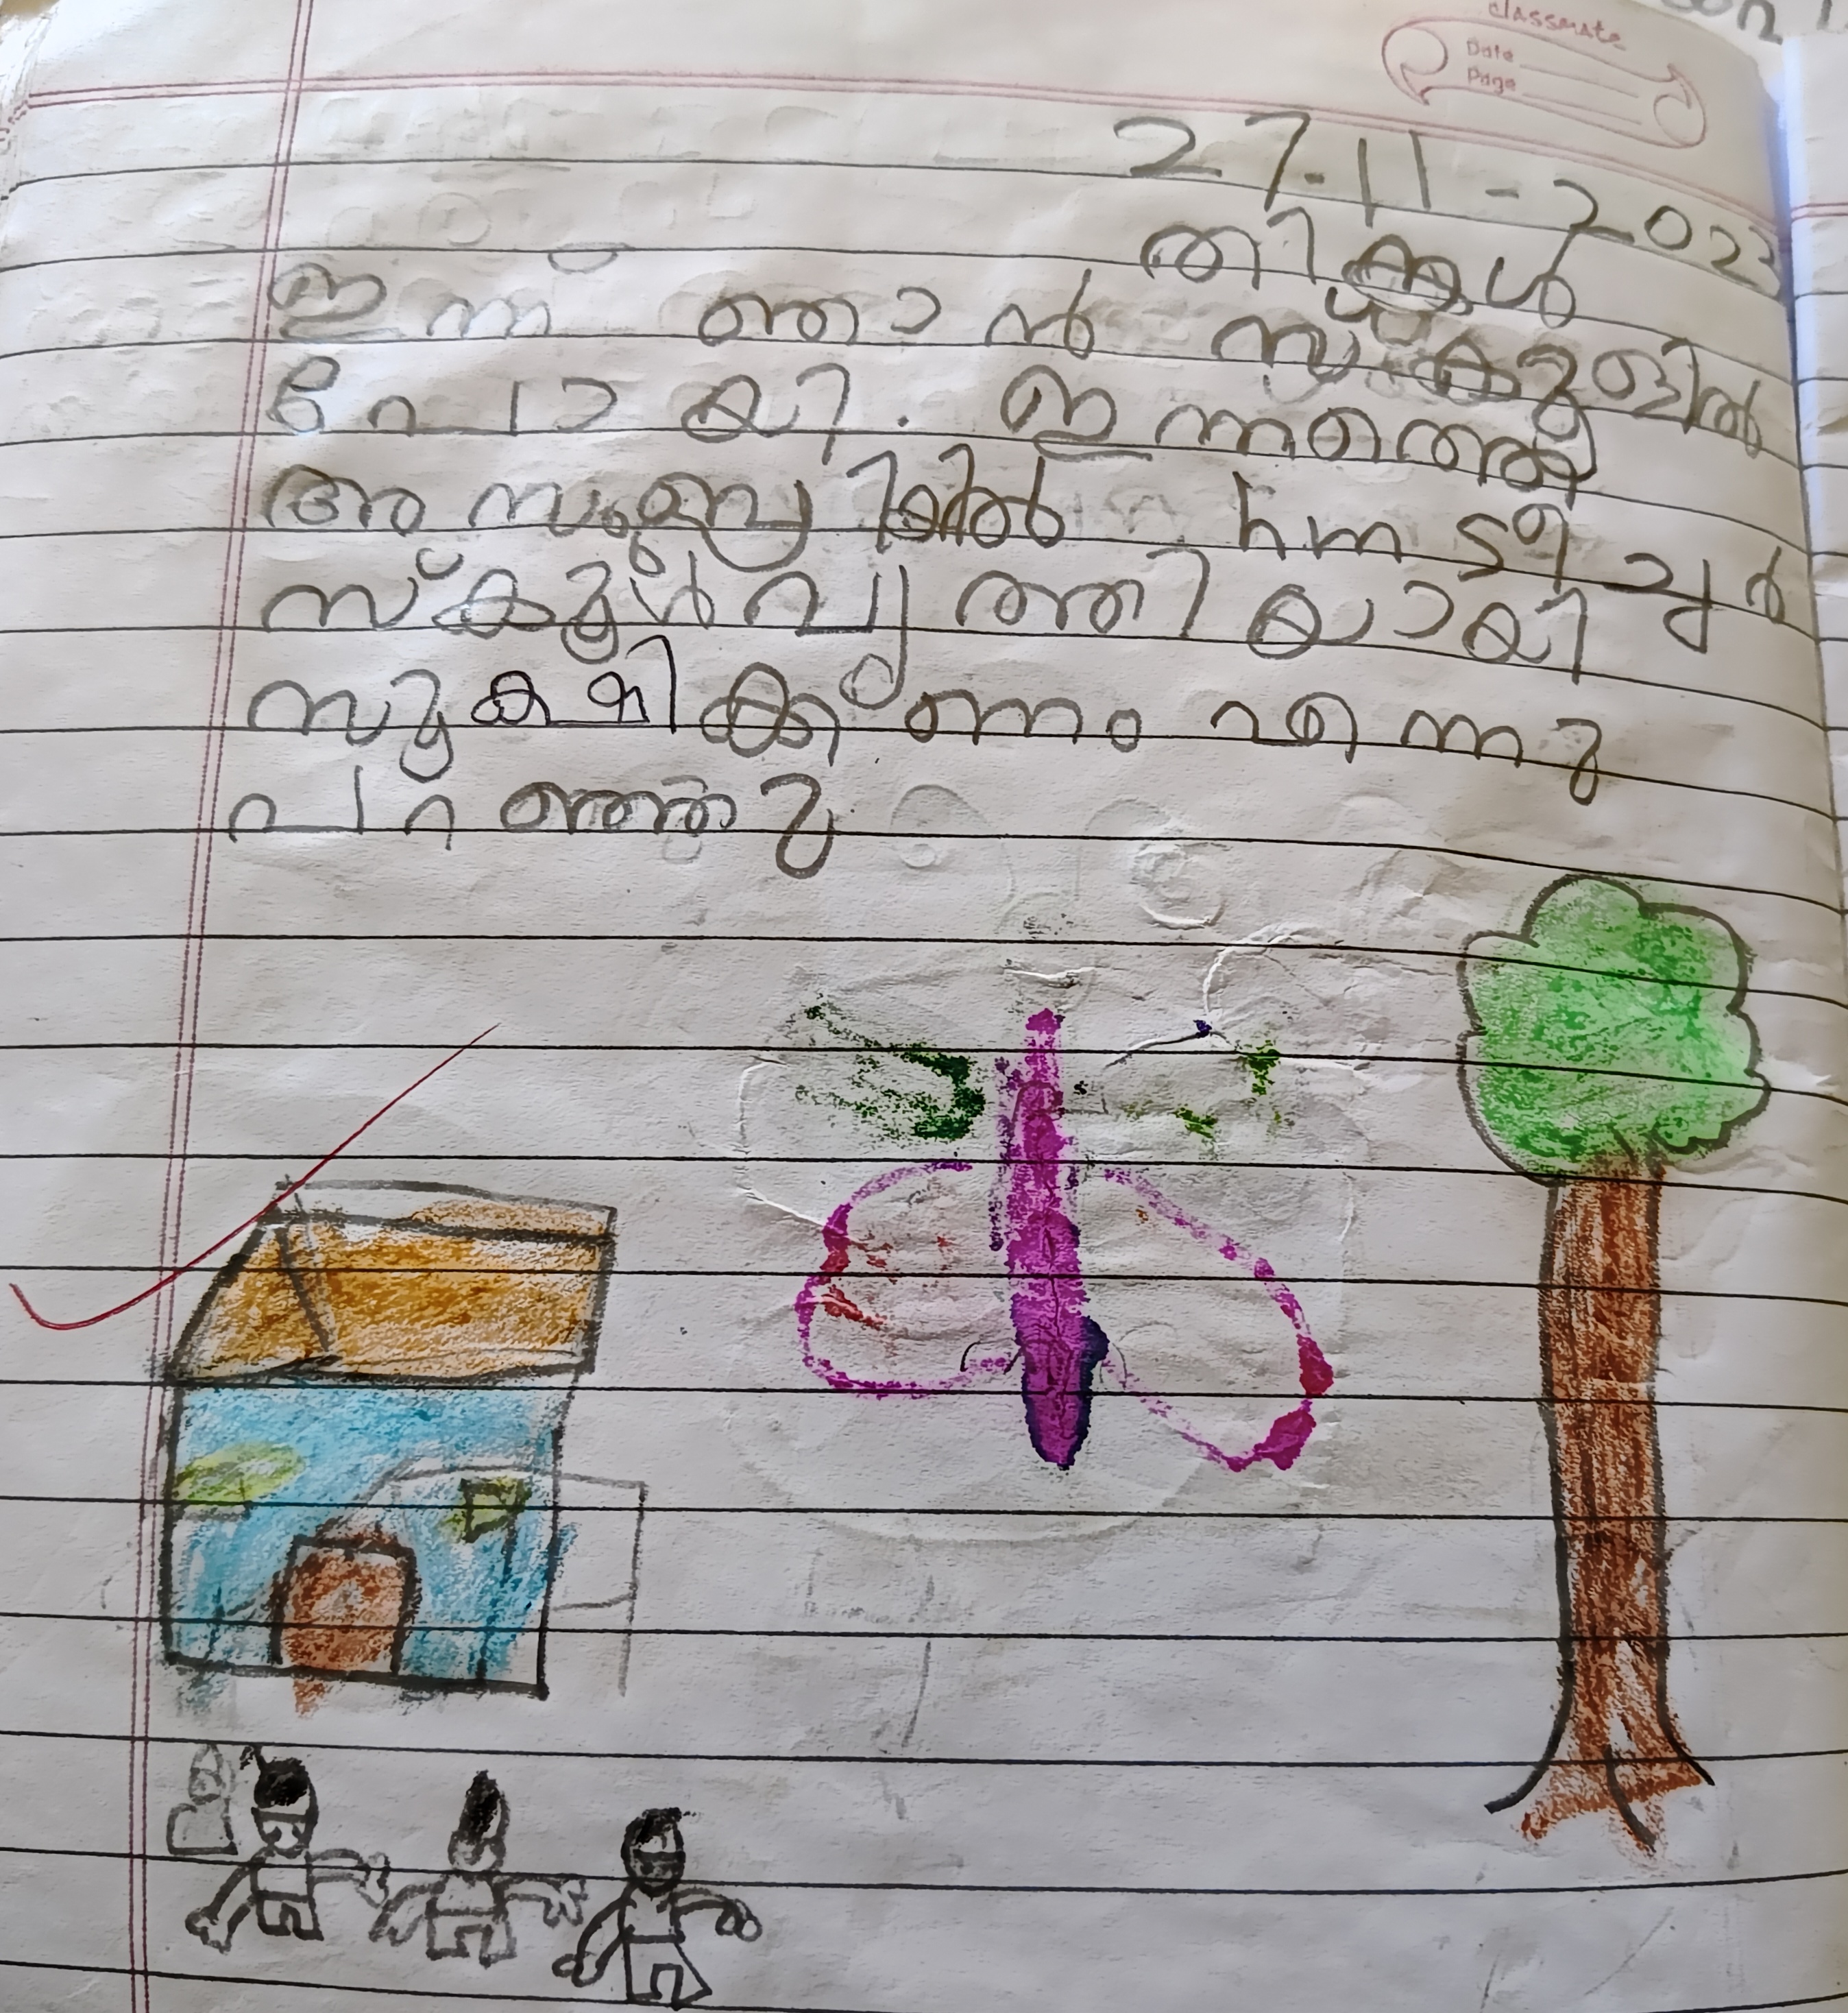 classmate
Date
Page
27-11-2023
തിങ്കൾ
ഇന്ന് ഞാൻ സ്കൂളിൽ
പോയി. ഇന്നത്തെ
hm ടീച്ചർ
സ്കൂൾ വൃത്തിയായി
എന്നു
പറഞ്ഞു